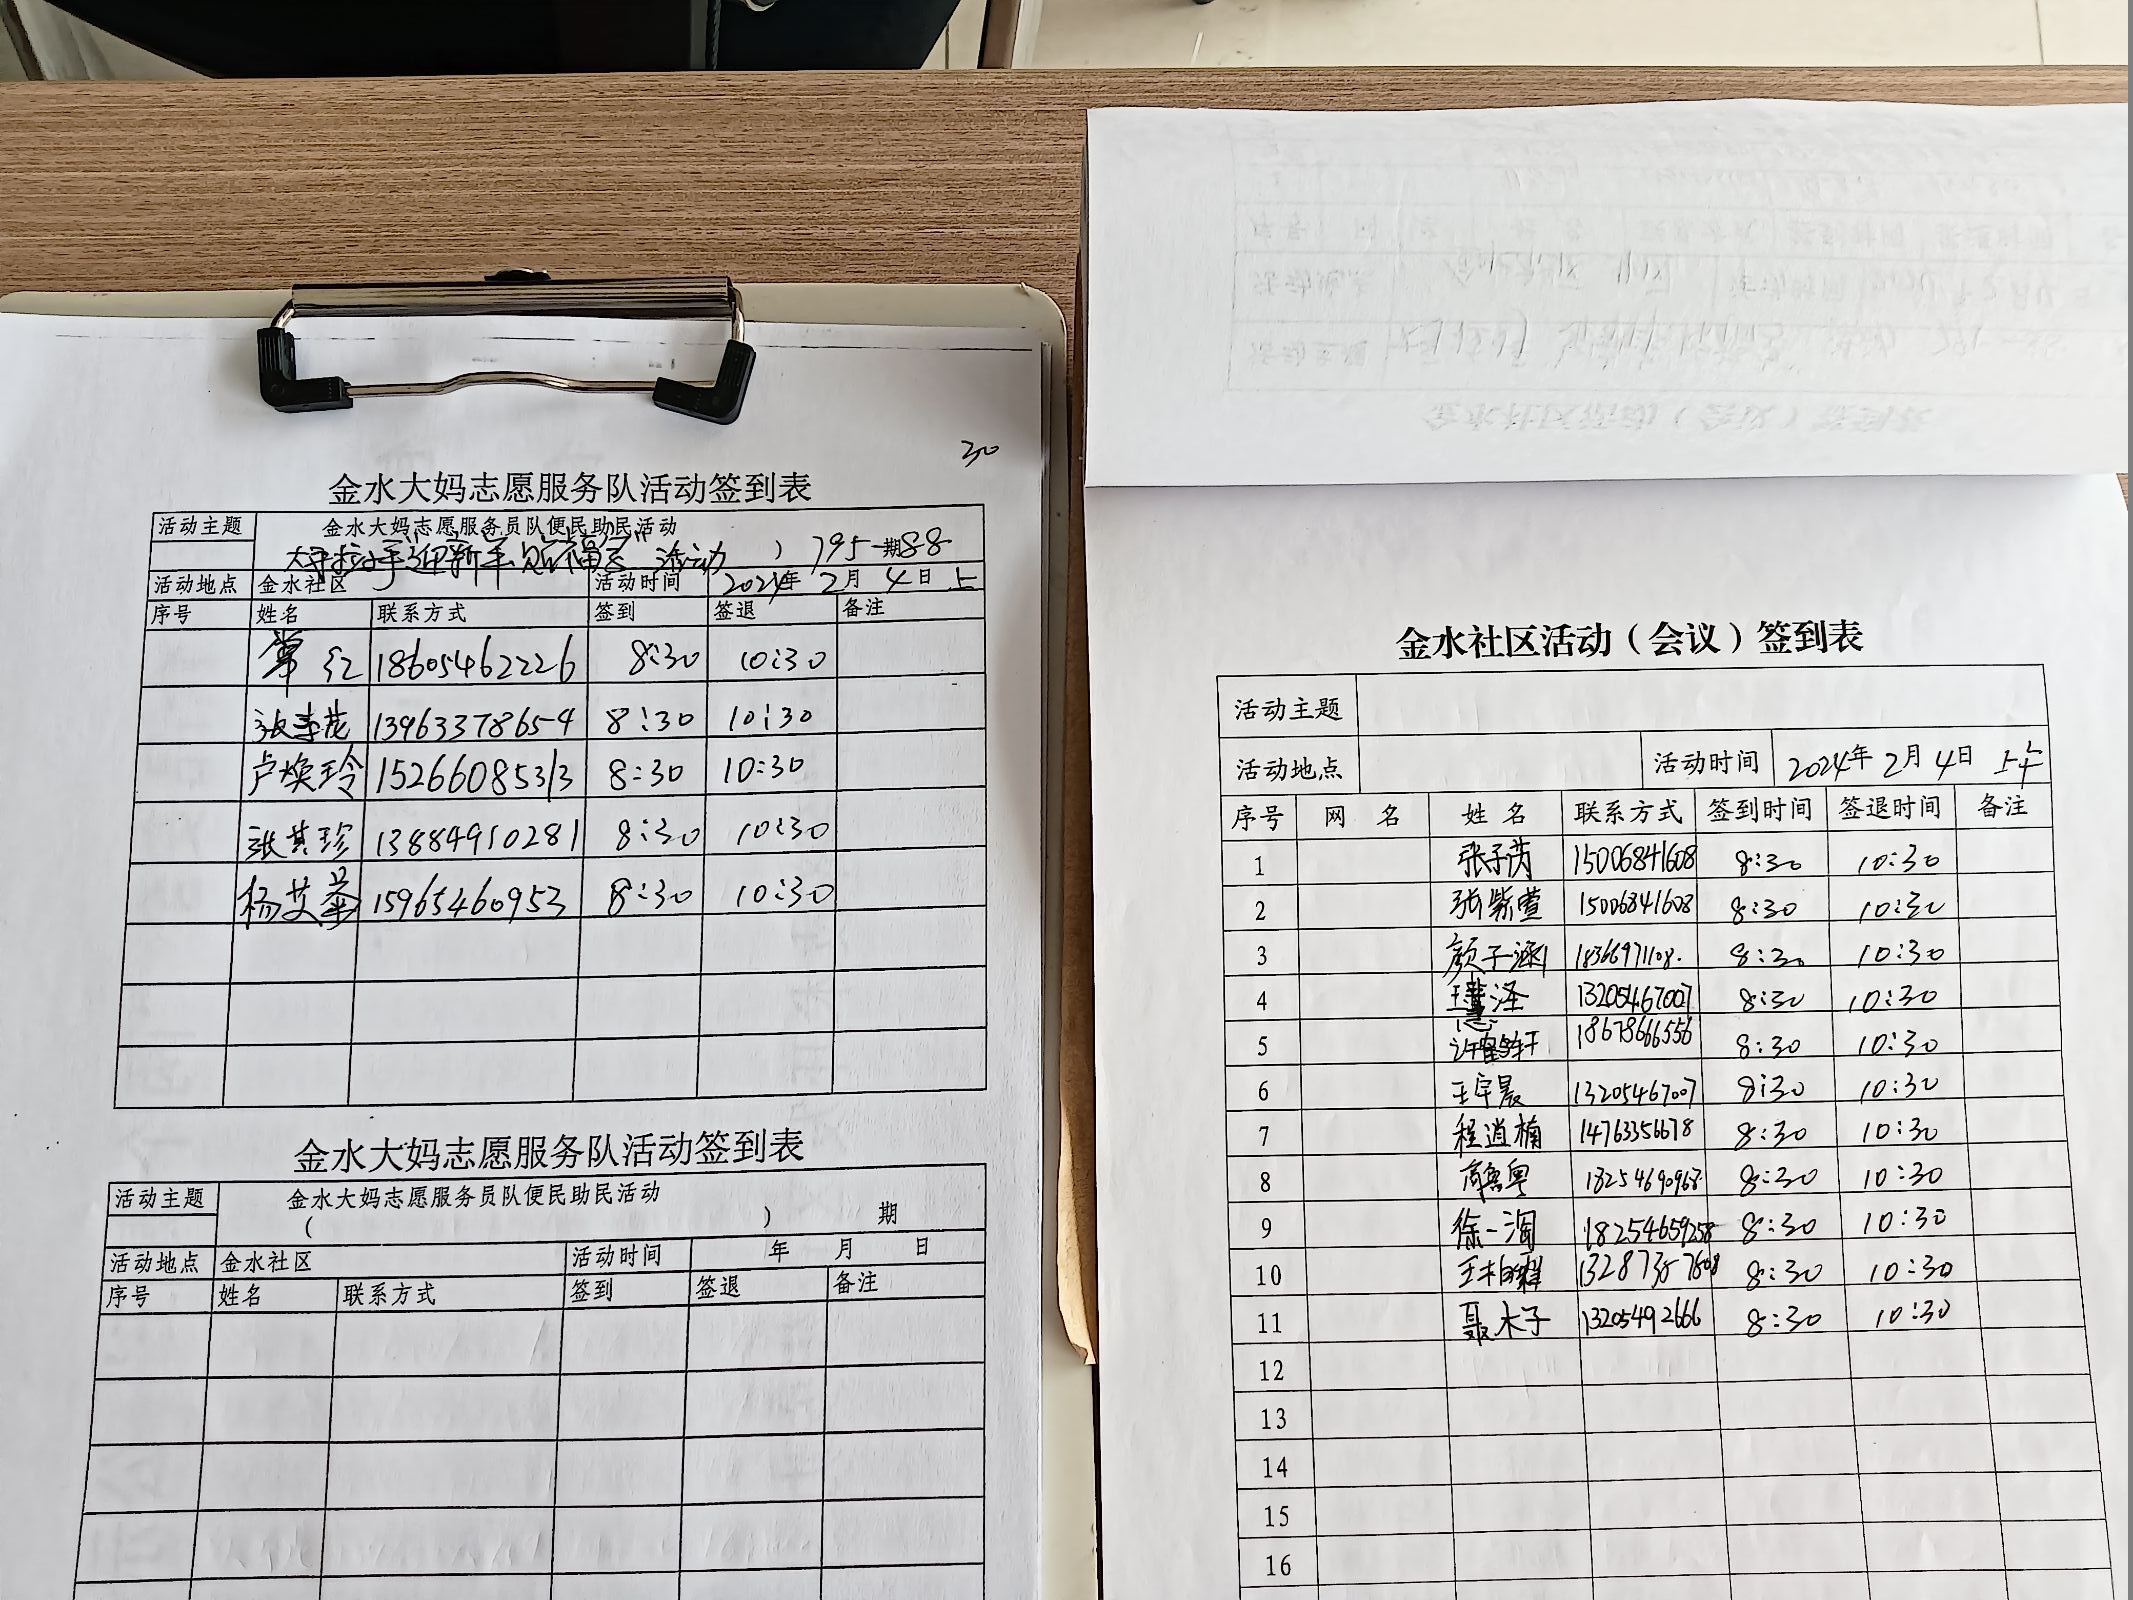 30
金水大妈志愿服务队活动签到表
活动主题 金水大妈志愿服务员队便民助民活动
大手拉小手迎新年 活动 ) 795期 88
活动地点 金水社区 活动时间 2024年 2月 4日 上
序号 姓名 联系方式 签到 签退 备注
常红 18605462226 8:30 10:30
13963378654 8:30 10:30
卢焕玲 15266085313 8:30 10:30
张其珍 13884910281 8:30 10:30
杨艾华 15965460953 8:30 10:30
金水大妈志愿服务队活动签到表
活动主题 金水大妈志愿服务员队便民助民活动
( ) 期
活动地点 金水社区 活动时间 年 月 日
序号 姓名 联系方式 签到 签退 备注
金水社区活动（会议）签到表
活动主题
活动地点 活动时间 2024年 2月 4日 上午
序号 网 名 姓 名 联系方式 签到时间 签退时间 备注
1 张子芮 15006841608 8:30 10:30
2 张紫萱 15006841608 8:30 10:30
3 颜子涵 18366971108. 8:30 10:30
4 王慧泽 13205467007 8:30 10:30
5 18678666556 8:30 10:30
6 王宇晨 13205467007 8:30 10:30
7 程道楠 14763356678 8:30 10:30
8 18254690968 8:30 10:30
9 徐一淘 18254659258 8:30 10:30
10 8:30 10:30
11 聂木子 13205492666 8:30 10:30
12
13
14
15
16